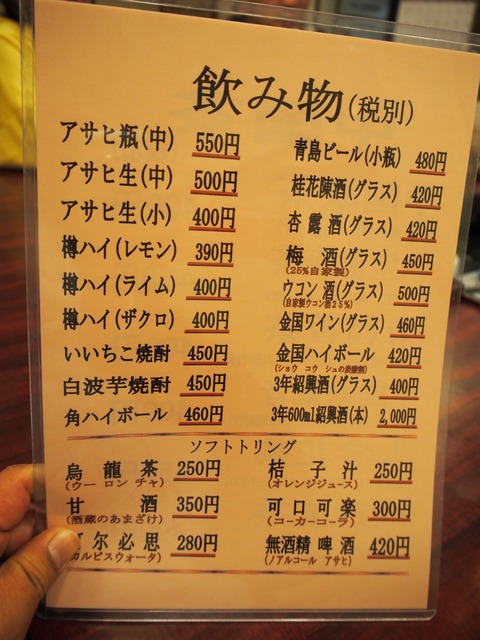 飲み物(税別)
アサヒ瓶(中) 550円
アサヒ生(中) 500円
アサヒ生(小) 400円
樽ハイ(レモン) 390円
樽ハイ(ライム) 400円
樽ハイ(ザクロ) 400円
いいちこ焼酎 450円
白波芋焼酎 450円
角ハイボール 460円
青島ビール(小瓶) 480円
桂花陳酒(グラス) 420円
杏露酒(グラス) 420円
梅酒(グラス) 450円
(25%自家製)
ウコン酒(グラス) 500円
(自家製ウコン酒25%)
金国ワイン(グラス) 460円
金国ハイボール 420円
(ショウコウシュの炭酸割)
3年紹興酒(グラス) 400円
3年600ml紹興酒(本) 2,000円
ソフトトリング
烏龍茶 250円
(ウーロンチャ)
甘酒 350円
(酒蔵のあまざけ)
尔必思 280円
カルピスウォータ)
桔子汁 250円
(オレンジジュース)
可口可楽 300円
(コーカーコーラ)
無酒精啤酒 420円
(ノアルコール アサヒ)